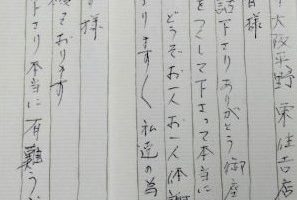 大阪平野 東住吉店
皆様
話下さり ありがとう 御座
をつくして下さって本当に
どうぞお一人お一人体
ります 私達の為
様
えおります
下さり本当に有難うご